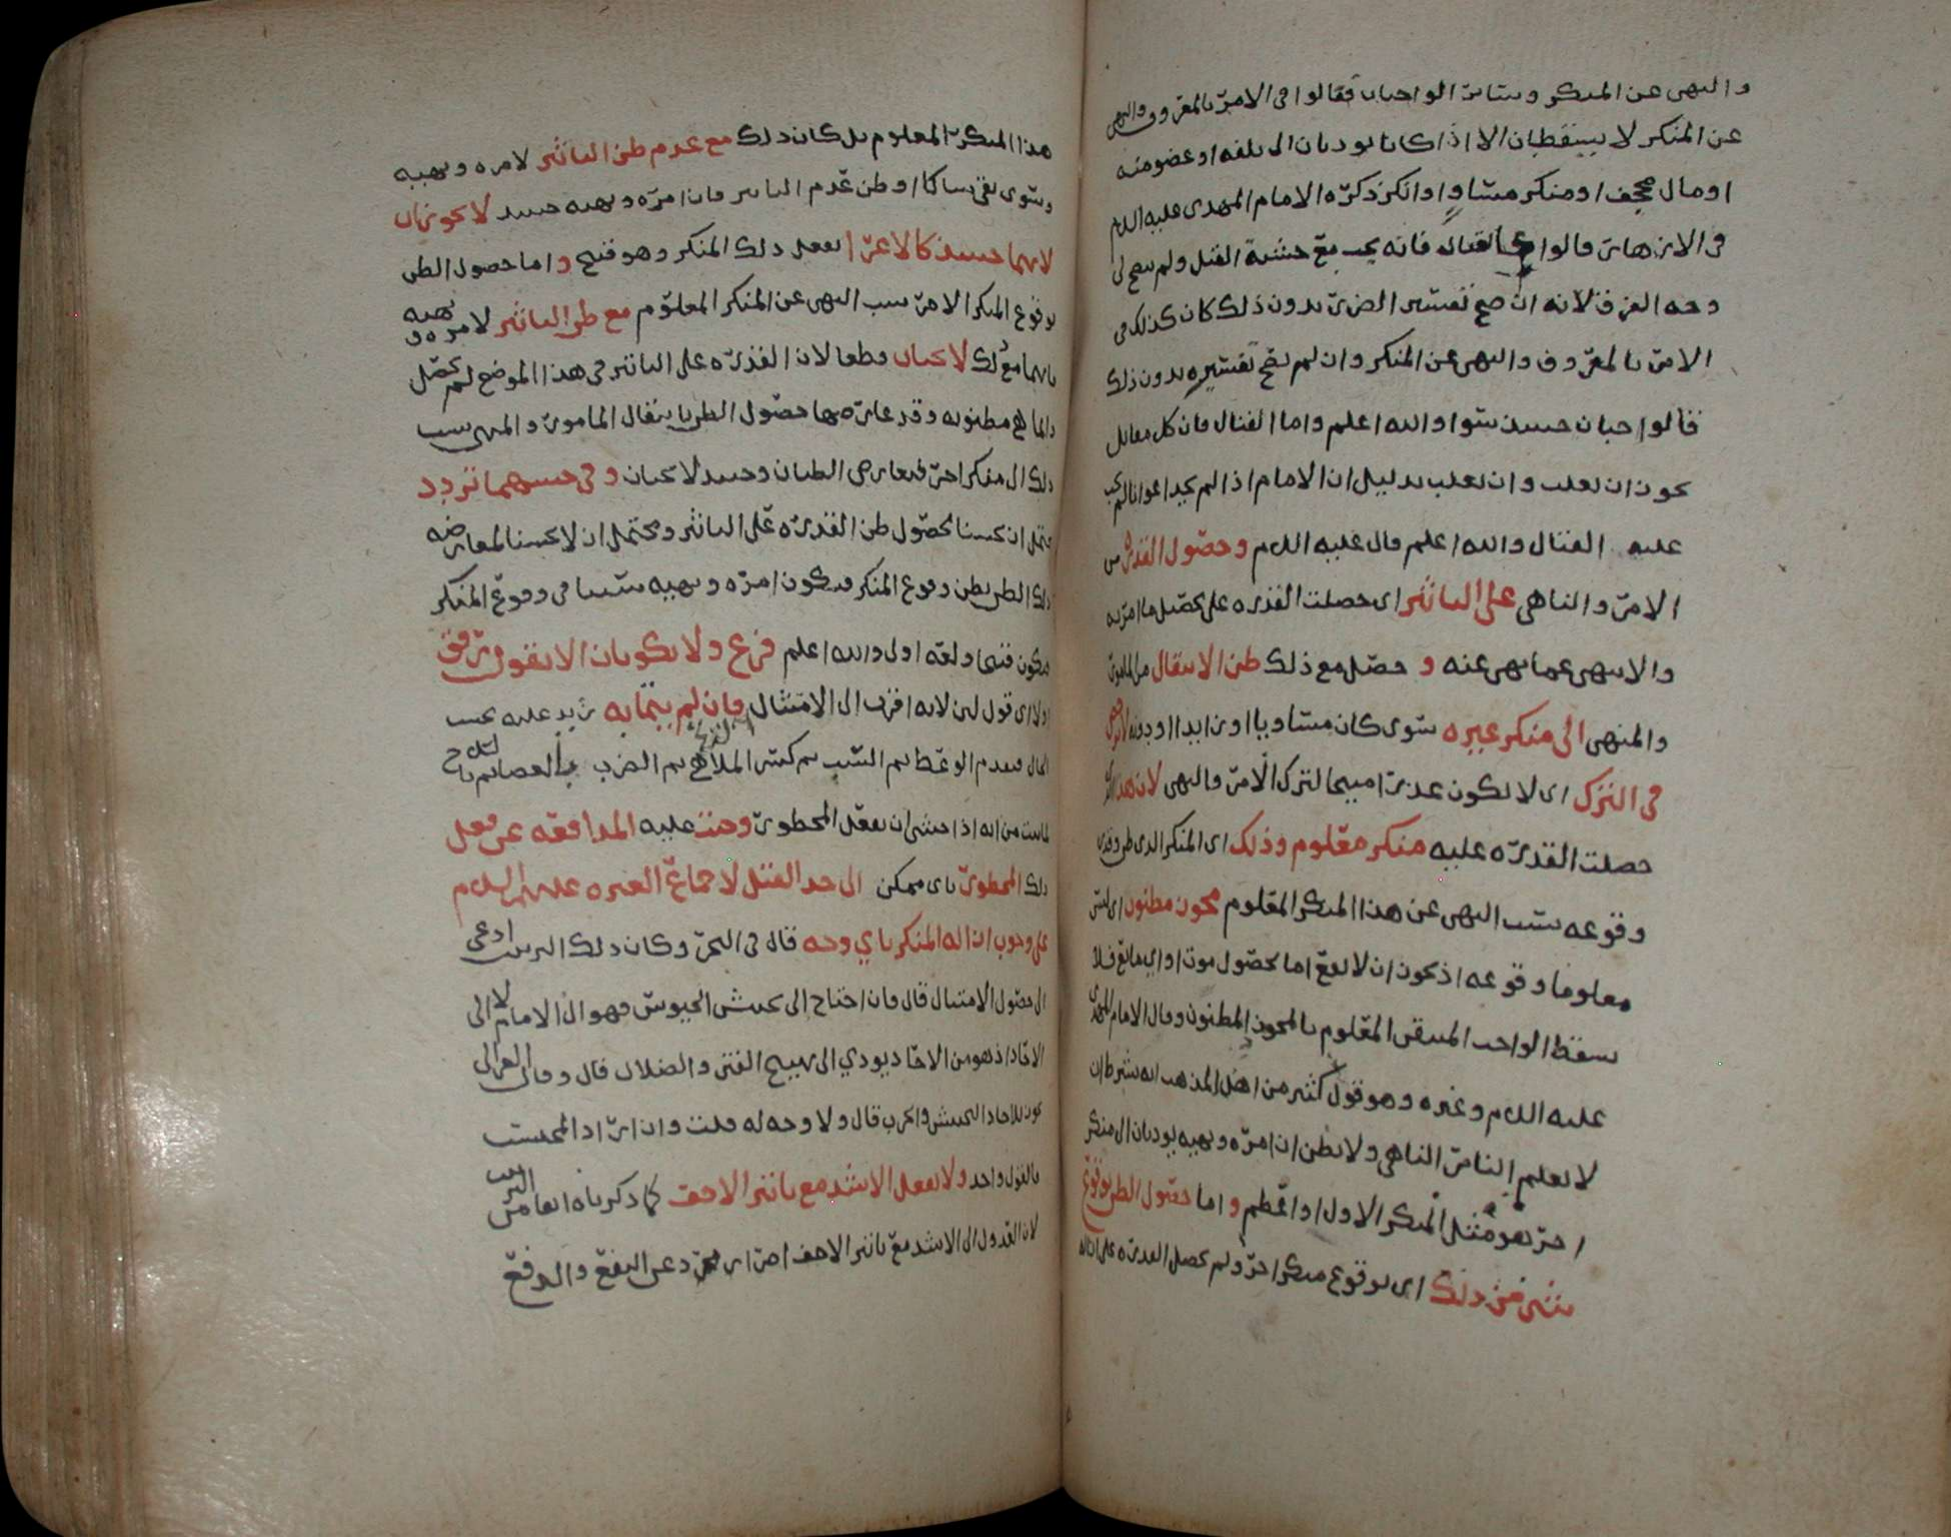 والنهي عن المنكر وسائر الواجبات فقالوا في الامر بالمعروف والنهي
عن المنكر لا يسقطان الا اذا كانا يوديان الى تلفه او عضو منه
او مال مجحف او منكر مساو او انكر ذكره الامام المهدي عليه السلم
في الازهار قالوا القتال فانه يجب مع خشية القتل ولم يصح لي
وجه الفرق لانه ان صح تفسير الضرر بدون ذلك كان كذلك في
الامر بالمعروف والنهي عن المنكر وان لم يصح تفسيره بدون ذلك
فالواجبان حينئذ سوا والله اعلم واما القتال فان كل مقاتل
يجوز ان يغلب وان يغلب بدليل ان الامام اذا لم يجد اعوانا لم يجب
عليه القتال والله اعلم قال عليه السلم وحصول القدرة من
الامر والناهي على التاثير اي حصلت القدره على تحصيل ما امر به
والانتهى عما نهى عنه و حصل مع ذلك ظن الانتقال من المامور
والمنهي الى منكر غيره سوى كان مساويا او زايدا او دونه
في الترك اي لا يكون عذرا مبيحا لترك الامر والنهي لان هذا
حصلت القدره عليه منكر معلوم وذلك اي المنكر الذي ظن
وقوعه بسبب النهي عن هذا المنكر المعلوم مجوز مظنون اي ليس
معلوما وقوعه اذ يجوز ان لا يقع اما بحصول موت او اي مانع فلا
يسقط الواجب المتيقن المعلوم بالمجوز المظنون وقال الامام المهدي
عليه السلم وغيره وهو قول كثير من اهل المذهب انه يشرط ان
لا يعلم الامر الناهي ولا يظن ان امره ونهيه يوديان الى منكر
اخر هو مثل المنكر الاول او اعظم و اما حصول الظن بوقوع
شي من ذلك اي بوقوع منكر اخر ولم يحصل القدره على ازالة
هذا المنكر المعلوم بل كان ذلك مع عدم ظن التاثير لامره ونهيه
وسوى بقي ساكتا او ظن عدم التاثير فان امره ونهيه حينئذ لا يجوزان
لانهما حينئذ كالاغرا بفعل ذلك المنكر وهو قبيح و اما حصول الظن
بوقوع المنكر الاخر بسبب النهي عن المنكر المعلوم مع ظن التاثير لامره و نهيه
فانهما مع ذلك لا يجبان قطعا لان القدره على التاثير في هذا الموضع لم تحصل
وانما هي مظنونه وقد عارضها حصول الظن بانتقال المامور والمنهي بسبب
ذلك الى منكر اخر فتعارض الظنان وحينئذ لا يجبان وفي حسنهما تردد
يحتمل ان يحسنا لحصول ظن القدره على التاثير ويحتمل ان لا يحسنا لمعارضه
ذلك الظن بظن وقوع المنكر فيكون امره ونهيه سببا في وقوع المنكر
فيكون قبيحا ولعله اولى والله اعلم فرع ولا يكونان الا بقول رفق
اولا اي قول لين لانه اقرب الى الامتثال فان لم يتما به زيد عليه بحسب
الحال فيقدم الوعظ ثم السب ثم كسر الملاهي ثم الضرب بالعصا ثم بالسلاح
لما ثبت من انه اذا خشي ان يفعل المحظور وجبت عليه المدافعه عن فعل
ذلك المحظور باي ممكن الى حد القتل لاجماع العتره عليهم السلم
على وجوب ازالة المنكر باي وجه قال في البحر وكان ذلك الترتيب ادعى
الى حصول الامتثال قال فان احتاج الى تجييش الجيوش فهو الى الامام لا الى
الاحاد اذ هو من الاحاد يودي الى تهييج الفتن والضلال قال وقال الغزالي
يجوز للاحاد التجييش والحرب قال ولا وجه له قلت وان اراد المحتسب
فالقول واحد ولا يفعل الاشد مع تاثير الاخف كما ذكرناه انفا من الترتيب
لان العدول الى الاشد مع تاثير الاخف اضرار مجرد عن النفع والدفع